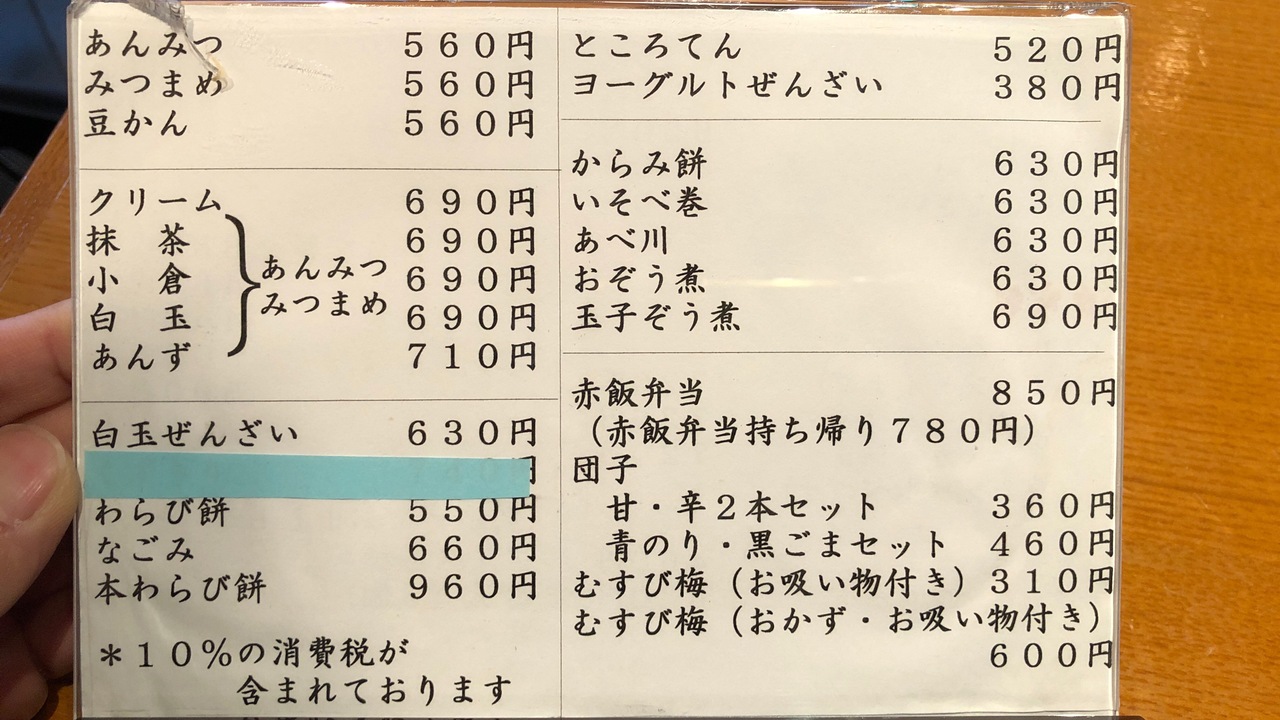 あんみつ ５６０円
みつまめ ５６０円
豆かん ５６０円
クリーム ６９０円
抹　茶 ６９０円
あんみつ
小　倉 ６９０円
みつまめ
白　玉 ６９０円
あんず ７１０円
白玉ぜんざい ６３０円
わらび餅 ５５０円
なごみ ６６０円
本わらび餅 ９６０円
＊１０％の消費税が
含まれております
ところてん ５２０円
ヨーグルトぜんざい ３８０円
からみ餅 ６３０円
いそべ巻 ６３０円
あべ川 ６３０円
おぞう煮 ６３０円
玉子ぞう煮 ６９０円
赤飯弁当 ８５０円
（赤飯弁当持ち帰り７８０円）
団子
甘・辛２本セット ３６０円
青のり・黒ごまセット ４６０円
むすび梅（お吸い物付き）３１０円
むすび梅（おかず・お吸い物付き）
６００円